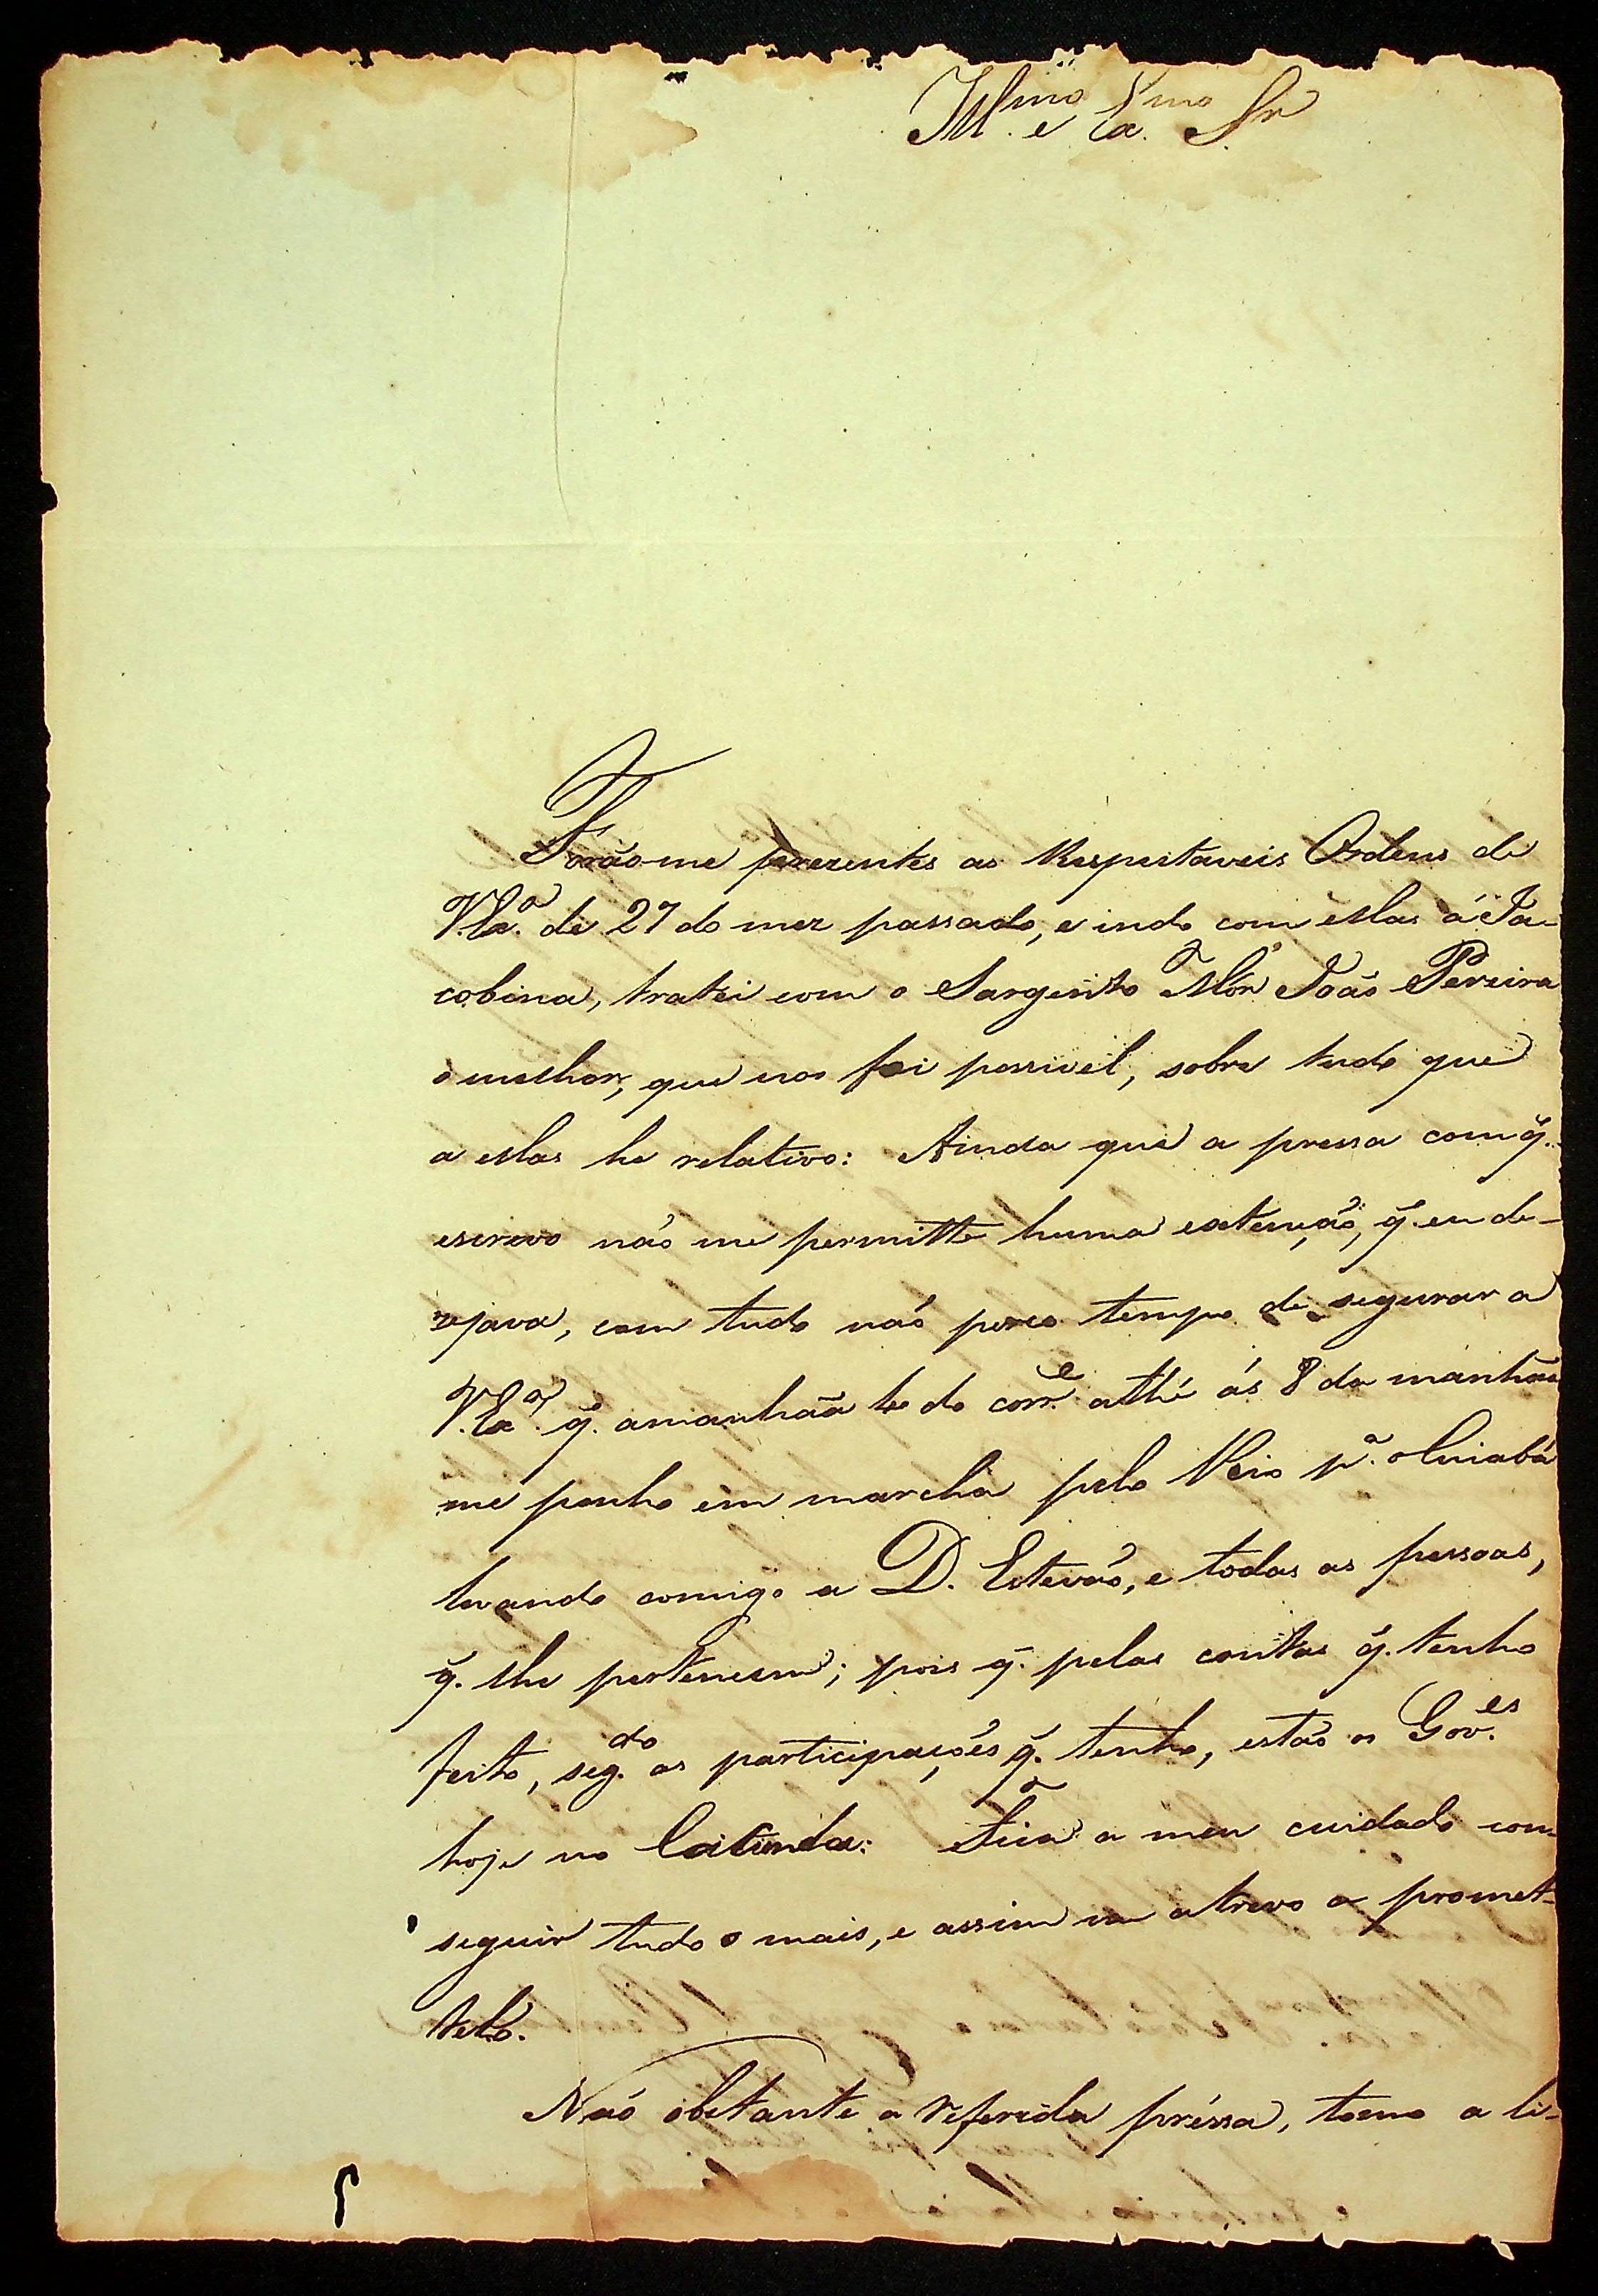 Ill.mo e Ex.mo Sr
Forão-me prezentes as Respeitaveis Ordens de
V. Ex.a de 27 do mez passado, e indo com ellas á Ja-
cobina, tratei com o Sargento Mór João Pereira
o melhor, que nos foi possivel, sobre tudo que
a ellas he relativo: Ainda que a pressa com q̃.
escrevo não me permitte huma extenção, q̃. eu de-
zejava, com tudo não perco tempo de segurar a
V. Ex.a q̃. amanhãa do corr.e athé ás 8 da manhãa
me ponho em marcha pelo Rio p.a o Cuiabá
levando comigo a D. Estevão, e todas as pessoas,
q̃. lhe pertencem; pois q̃. pelas contas q̃. tenho
feito, seg.do as participações q̃. tenho, estão os Gov.es
hoje no Fica a meu cuidado con-
seguir tudo o mais, e assim me atrevo a promet-
telo.
Não obstante a referida préssa, tomo a li-